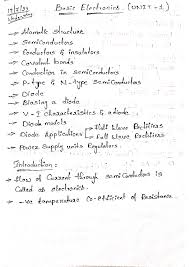 Basic Electronics. (UNIT-1)
→ Atomic structure
→ Semiconductors
→ Conductors & insulators
→ Covalent bonds
→ Conduction in semiconductors
→ P-type & N-type Semiconductors
→ Diode
→ Biasing a diode
→ V-I Characteristics a diode
→ Diode models
→ Diode Applications → Half Wave Rectifiers
→ Full Wave Rectifiers
→ Power Supply units Regulators.
Introduction:
→ Flow of Current through semiConductors is
Called as electronics.
→ -ve temperature Co-efficient of Resistance.